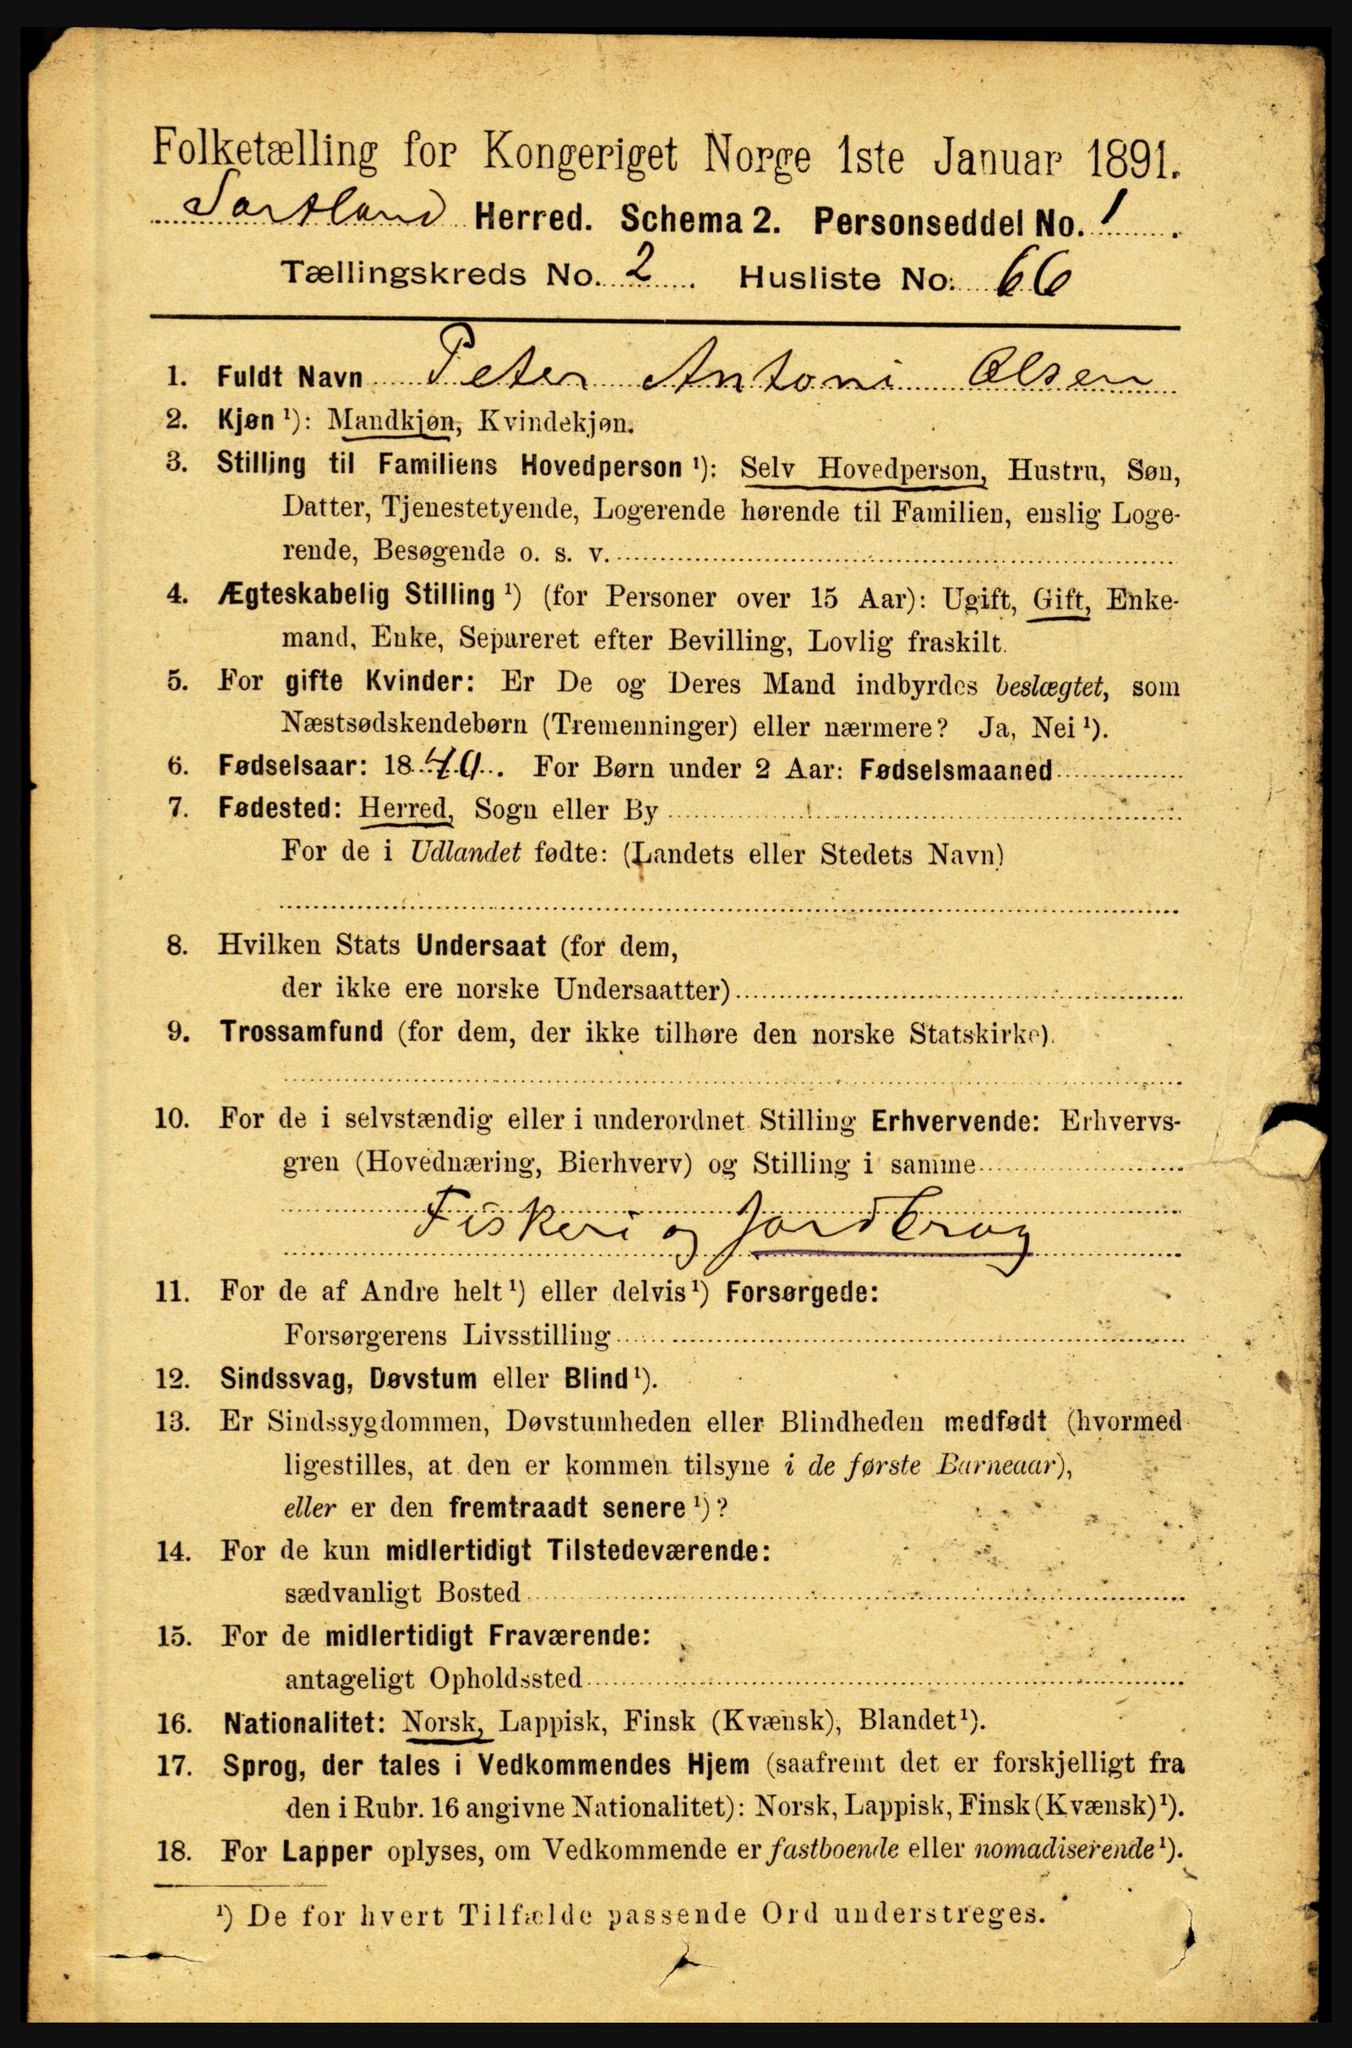 Folketælling for Kongeriget Norge 1ste Januar 1891.
Sortland Herred. Schema 2. Personseddel No. 1.
Tællingskreds No. 2. Husliste No: 66
1. Fuldt Navn Peter Antoni Olsen
2. Kjøn ¹): Mandkjøn, Kvindekjøn.
3. Stilling til Familiens Hovedperson ¹): Selv Hovedperson, Hustru, Søn,
Datter, Tjenestetyende, Logerende hørende til Familien, enslig Loge-
rende, Besøgende o. s. v.
4. Ægteskabelig Stilling ¹) (for Personer over 15 Aar): Ugift, Gift, Enke-
mand, Enke, Separeret efter Bevilling, Lovlig fraskilt.
5. For gifte Kvinder: Er De og Deres Mand indbyrdes beslægtet, som
Næstsødskendebørn (Tremenninger) eller nærmere? Ja, Nei ¹).
6. Fødselsaar: 1840. For Børn under 2 Aar: Fødselsmaaned
7. Fødested: Herred, Sogn eller By
For de i Udlandet fødte: (Landets eller Stedets Navn)
8. Hvilken Stats Undersaat (for dem,
der ikke ere norske Undersaatter)
9. Trossamfund (for dem, der ikke tilhøre den norske Statskirke).
10. For de i selvstændig eller i underordnet Stilling Erhvervende: Erhvervs-
gren (Hovednæring, Bierhverv) og Stilling i samme
Fiskeri og Jordbrug
11. For de af Andre helt ¹) eller delvis ¹) Forsørgede:
Forsørgerens Livsstilling
12. Sindssvag, Døvstum eller Blind ¹).
13. Er Sindssygdommen, Døvstumheden eller Blindheden medfødt (hvormed
ligestilles, at den er kommen tilsyne i de første Barneaar),
eller er den fremtraadt senere ¹)?
14. For de kun midlertidigt Tilstedeværende:
sædvanligt Bosted
15. For de midlertidigt Fraværende:
antageligt Opholdssted
16. Nationalitet: Norsk, Lappisk, Finsk (Kvænsk), Blandet ¹).
17. Sprog, der tales i Vedkommendes Hjem (saafremt det er forskjelligt fra
den i Rubr. 16 angivne Nationalitet): Norsk, Lappisk, Finsk (Kvænsk) ¹).
18. For Lapper oplyses, om Vedkommende er fastboende eller nomadiserende ¹).
¹) De for hvert Tilfælde passende Ord understreges.